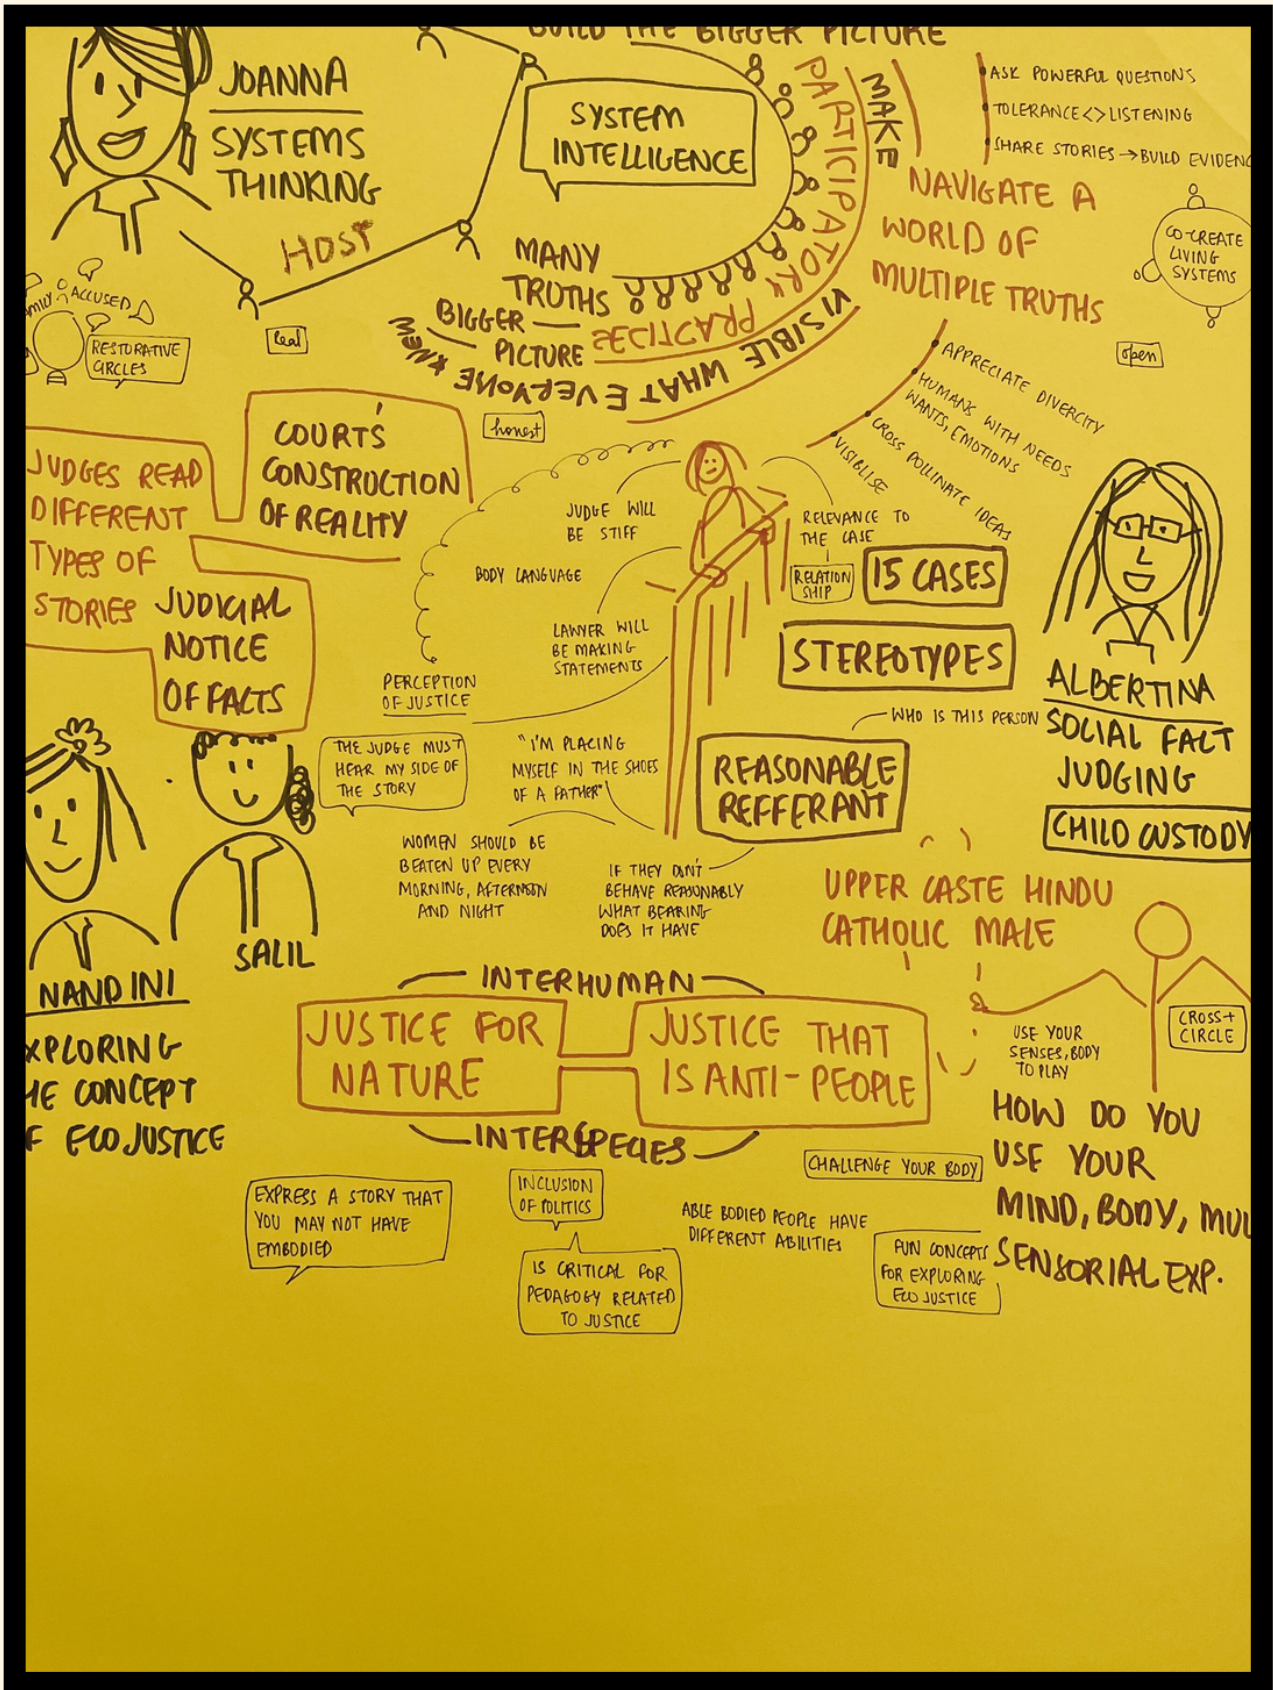 BUILD THE BIGGER PICTURE
JOANNA
SYSTEMS
THINKING
HOST
SYSTEM
INTELLIGENCE
MANY
TRUTHS
BIGGER
PICTURE
PARTICIPATORY PRACTICES
MAKE VISIBLE WHAT EVERYONE KNEW
ASK POWERFUL QUESTIONS
TOLERANCE<>LISTENING
SHARE STORIES→BUILD EVIDENC
NAVIGATE A
WORLD OF
MULTIPLE TRUTHS
CO-CREATE
LIVING
SYSTEMS
open
APPRECIATE DIVERCITY
HUMANS WITH NEEDS
WANTS, EMOTIONS
CROSS POLLINATE IDEAS
VISIBLISE
MILY
ACCUSED
RESTORATIVE
CIRCLES
honest
JUDGES READ
DIFFERENT
TYPES OF
STORIES
COURT'S
CONSTRUCTION
OF REALITY
JUDICIAL
NOTICE
OF FACTS
JUDGE WILL
BE STIFF
BODY LANGUAGE
LAWYER WILL
BE MAKING
STATEMENTS
PERCEPTION
OF JUSTICE
RELEVANCE TO
THE CASE
RELATION
SHIP
15 CASES
STEREOTYPES
WHO IS THIS PERSON
REASONABLE
REFFERANT
ALBERTINA
SOCIAL FACT
JUDGING
CHILD CUSTODY
THE JUDGE MUST
HEAR MY SIDE OF
THE STORY
"I'M PLACING
MYSELF IN THE SHOES
OF A FATHER"
WOMEN SHOULD BE
BEATEN UP EVERY
MORNING, AFTERNOON
AND NIGHT
IF THEY DON'T
BEHAVE REASONABLY
WHAT BEARING
DOES IT HAVE
UPPER CASTE HINDU
CATHOLIC MALE
SALIL
NANDINI
XPLORING
HE CONCEPT
F ECO JUSTICE
INTERHUMAN
JUSTICE FOR
NATURE
JUSTICE THAT
IS ANTI-PEOPLE
INTERSPECIES
USE YOUR
SENSES, BODY
TO PLAY
CROSS+
CIRCLE
HOW DO YOU
USE YOUR
MIND, BODY, MUL
SENSORIAL EXP.
CHALLENGE YOUR BODY
EXPRESS A STORY THAT
YOU MAY NOT HAVE
EMBODIED
INCLUSION
OF POLITICS
IS CRITICAL FOR
PEDAGOGY RELATED
TO JUSTICE
ABLE BODIED PEOPLE HAVE
DIFFERENT ABILITIES
FUN CONCEPTS
FOR EXPLORING
ECO JUSTICE